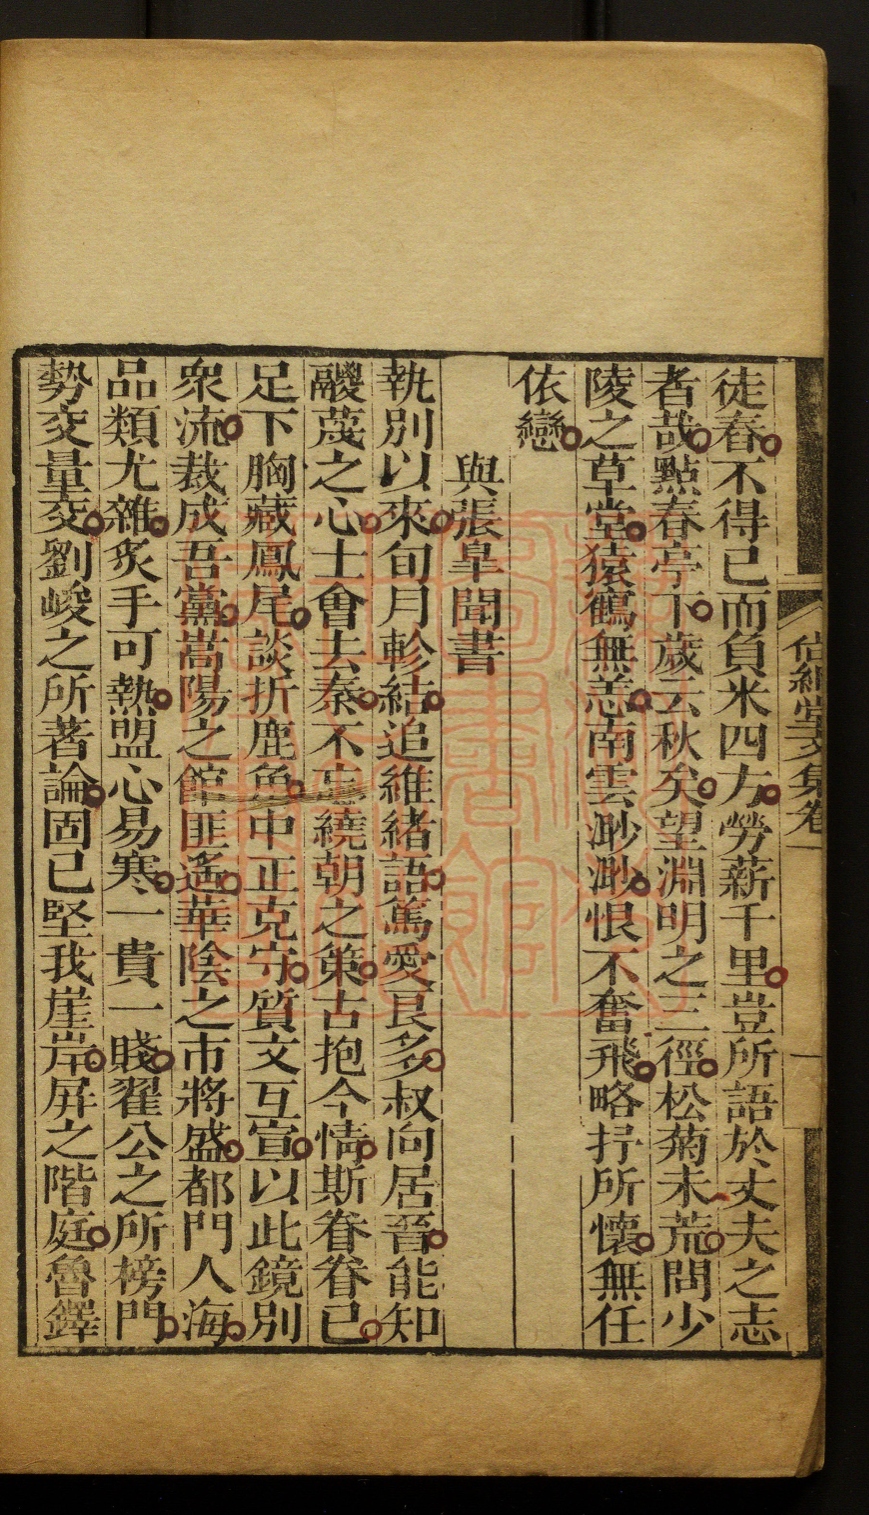 徒舂不得已而負米四方勞薪千里豈所語於丈夫之志
者哉點春亭下歲云秋矣望淵明之三徑松菊未荒問少
陵之草堂猿鶴無恙南雲渺渺恨不奮飛略抒所懷無任
依戀
與張臯聞書
執別以來旬月軫結追維緒語篤愛良多叔向居晉能知
鬷蔑之心士會去秦不忘繞朝之策古抱今情斯眷眷已
足下胸藏鳳尾談折鹿角中正克守質文互宣以此鏡別
衆流裁成吾黨嵩陽之館匪遙華陰之市將盛都門人海
品類尤雜炙手可熱盟心易寒一貴一賤翟公之所榜門
勢交量交劉峻之所著論固已堅我崖岸屏之階庭魯鐸
堂文集卷一